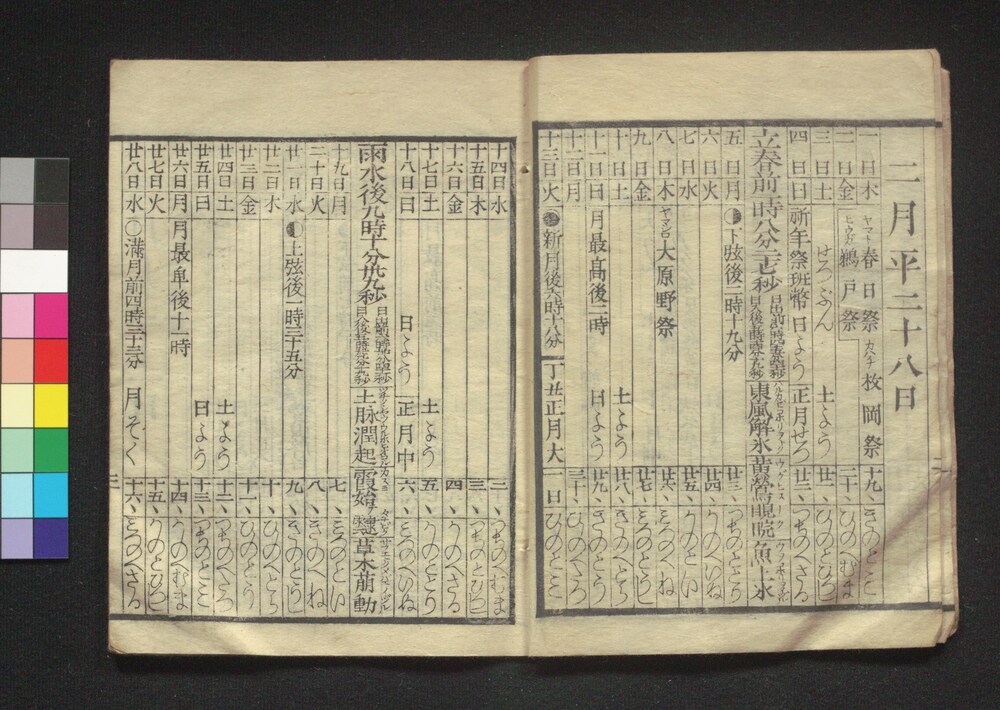 二月平二十八日
一日木 ヤマト 春日祭 カハチ 枚岡祭 十九、きのとミ
二日金 ヒウガ 鵜戸祭 二十、ひのへむま
三日土 せつぶん 土よう 廿一、ひのとひつじ
四日日 祈年祭班幣 日よう 正月せつ 廿二、つちのへさる
立春前一時八分 東風解氷 黄鶯睍睆 魚上氷
五日月 下弦後二時十九分 廿三、つちのととり
六日火 廿四、かのへいぬ
七日水 廿五、かのとい
八日木 ヤマシロ 大原野祭 廿六、みつのへね
九日金 廿七、みつのとうし
十日土 土よう 廿八、きのへとら
十一日日 月最高後二時 日よう 廿九、きのとう
十二日月 三十、ひのへたつ
十三日火 新月後六時十八分 丁丑正月大 一日 ひのとミ
十四日水 二、つちのへむま
十五日木 三、つちのとひつじ
十六日金 四、かのへさる
十七日土 土よう 五、かのととり
十八日日 日よう 正月中 六、みつのへいぬ
雨水後九時十分 土脉潤起 霞始靆 草木萠動
十九日月 七、みつのとい
二十日火 八、きのへね
廿一日水 上弦後一時三十五分 九、きのとうし
廿二日木 十、ひのへとら
廿三日金 十一、ひのとう
廿四日土 土よう 十二、つちのへたつ
廿五日日 日よう 十三、つちのとミ
廿六日月 月最卑後十一時 十四、かのへむま
廿七日火 十五、かのとひつじ
廿八日水 満月前四時三十三分 月そく 十六、みつのへさる